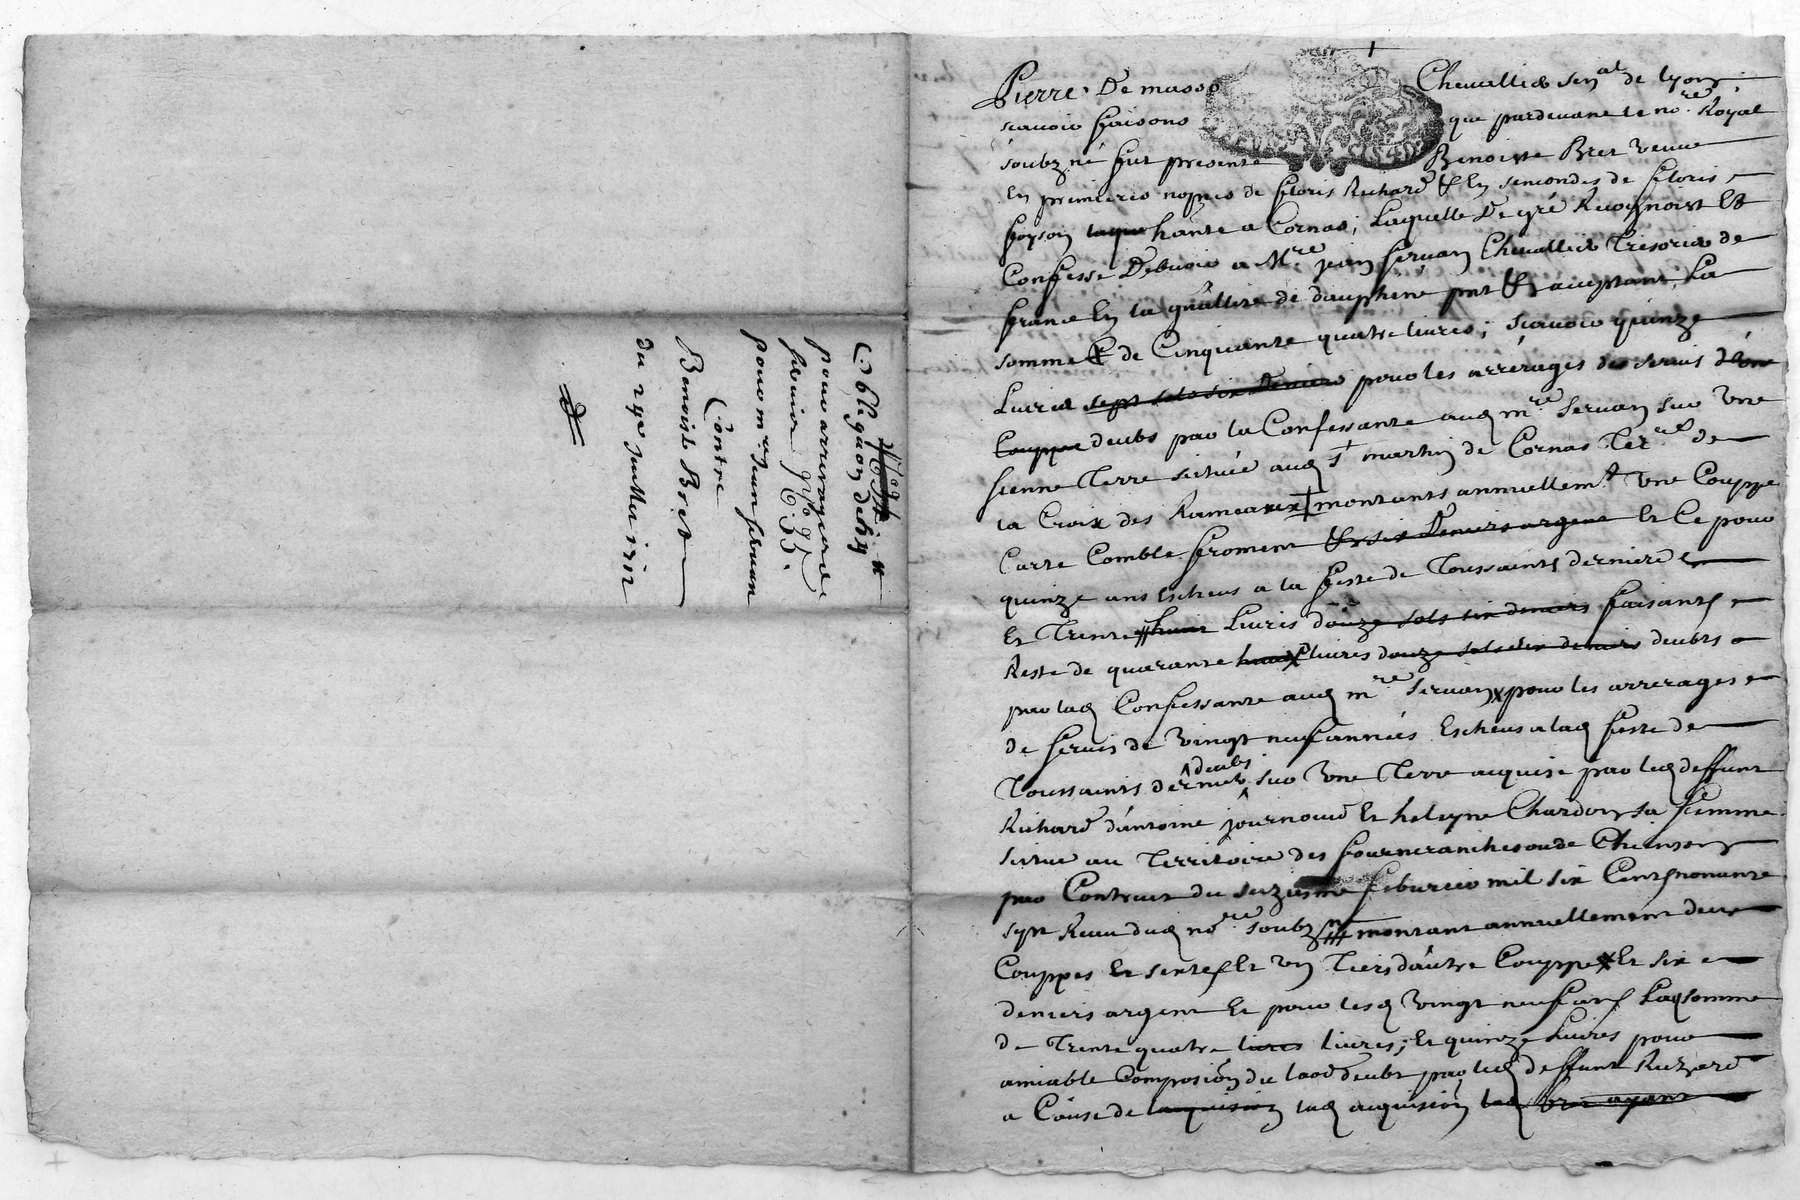 Obligation de 54 ll
pour arrerages de
servis n° 35.
pour mre jean servan
Contre
Benoiste Bret
du 29e juillet 1712
Pierre De masso Chevallier senal de lyon
scavoir faisons que pardevant le nore Royal
soubzné fut presente Benoiste Bret veuve
En premieres nopces de floris Richard Et En secondes de floris
foyson laque hante a Cornas, Laquelle De gré Recognoist Et
Confesse Debvoir a Mre jean servan Chevallier Trésorier de
france En la généralité de dauphiné pnt Et acceptant, La
somme de Cinquante quatre livres; scavoir quinze
Livres sept sols six Deniers pour les arrérages de servis d'une
Couppe deubs par la Confessante aud mre Servan sur Une
sienne Terre scittuée aud St martin de Cornas Terre de
la Croix des Rameaux montants annuellemt Une Couppe
Carte Comble froment Et six Deniers argent Et Ce pour
quinze ans Escheus a la feste de Toussaints derniere
Et Trente huit Livres douze sols six deniers faisants
Reste de quarante livres douze sols six deniers deubts
par lad Confessante aud mre Servan pour les arrerages
de servis de vingt neuf années Escheus a lad feste de
deubs
Toussaints derniere sur Une Terre acquise par led deffunt
Richard d'antoine journoud Et heleyne Chardon sa femme
scitue au Territoire des fourneranches ou de Chanson
par Contrat du seizieme feburier mil six Cents nonante
sept Receu dud nore soubzné montant annuellement deux
Couppes Et sixte Et Un Tiers d'autre Couppe Et six
deniers argent Et pour lesd vingt neuf ans Lad somme
de Trente quatre livres livres; Et quinze Livres pour
amiable Composion du laod deubt par led deffunt Richard
a Cause de lacquision lad acquision